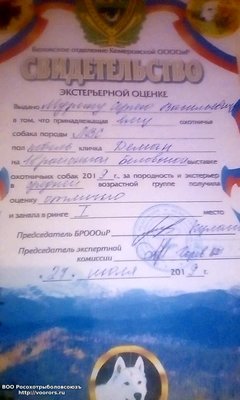 Беловское отделение Кемеровской ООООиР
СВИДЕТЕЛЬСТВО
ЭКСТЕРЬЕРНОЙ ОЦЕНКЕ
Выдано Сергею Васильевичу
в том, что принадлежащая ему охотничья
собака породы ЛЗС
пол кобель кличка Демон
на Беловской выставке
охотничьих собак 201 г., за породность и экстерьер
в средней возрастной группе получила
оценку отлично
и заняла в ринге I место
Председатель БРОООиР
Председатель экспертной
комиссии
29. июля 201 г.
ВОО Росохотрыболовсоюзъ
http://voorors.ru